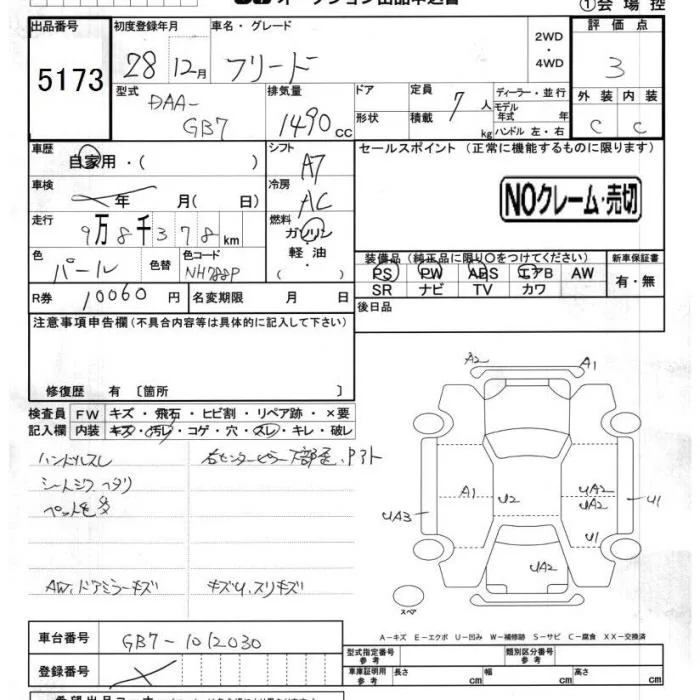 ①会場控
出品番号
5173
初度登録年月
28 12月
車名・グレード
フリード
2WD
・
4WD
評価点
3
型式
DAA-
GB7
排気量
1490 cc
ドア
形状
定員 7 人
積載 kg
ディーラー・並行
モデル
年式 年
ハンドル 左・右
外装 内装
C C
車歴
自家用・( )
シフト
A7
セールスポイント (正常に機能するものに限ります)
NOクレーム・売切
車検
年 月( 日)
冷房
AC
走行
9万8千378km
燃料
ガソリン
・
軽油
( )
色
パール
色替
色コード
NH788P
装備品(純正品に限り○をつけてください)
PS PW ABS エアB AW
SR ナビ TV カワ
新車保証書
有・無
R券 10060 円
名変期限 月 日
後日品
注意事項申告欄(不具合内容等は具体的に記入して下さい)
修復歴 有 〔箇所 〕
検査員
記入欄
FW キズ・飛石・ヒビ割・リペア跡・×要
内装 キズ・汚レ・コゲ・穴・スレ・キレ・破レ
ハンドルスレ
シートシワ、ヘタリ
ペット毛多
AW、ドアミラーキズ
右センターピラー下部歪、Pアト
キズU、スリキズ
A2
A1
A1
U2
UA2
UA2
U1
UA3
U1
UA2
スペア
A-キズ E-エクボ U-凹み W-補修跡 S-サビ C-腐食 XX-交換済
車台番号
GB7-1012030
登録番号
型式指定番号
参考
類別区分番号
参考
車庫証明用
参考
長さ cm
幅 cm
高さ cm